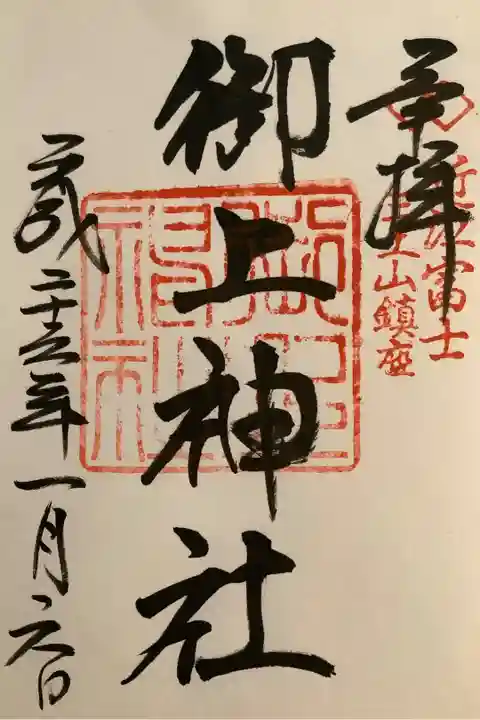 奉拝
近江富士
三上山鎮座
御上神社
平成二十五年一月六日